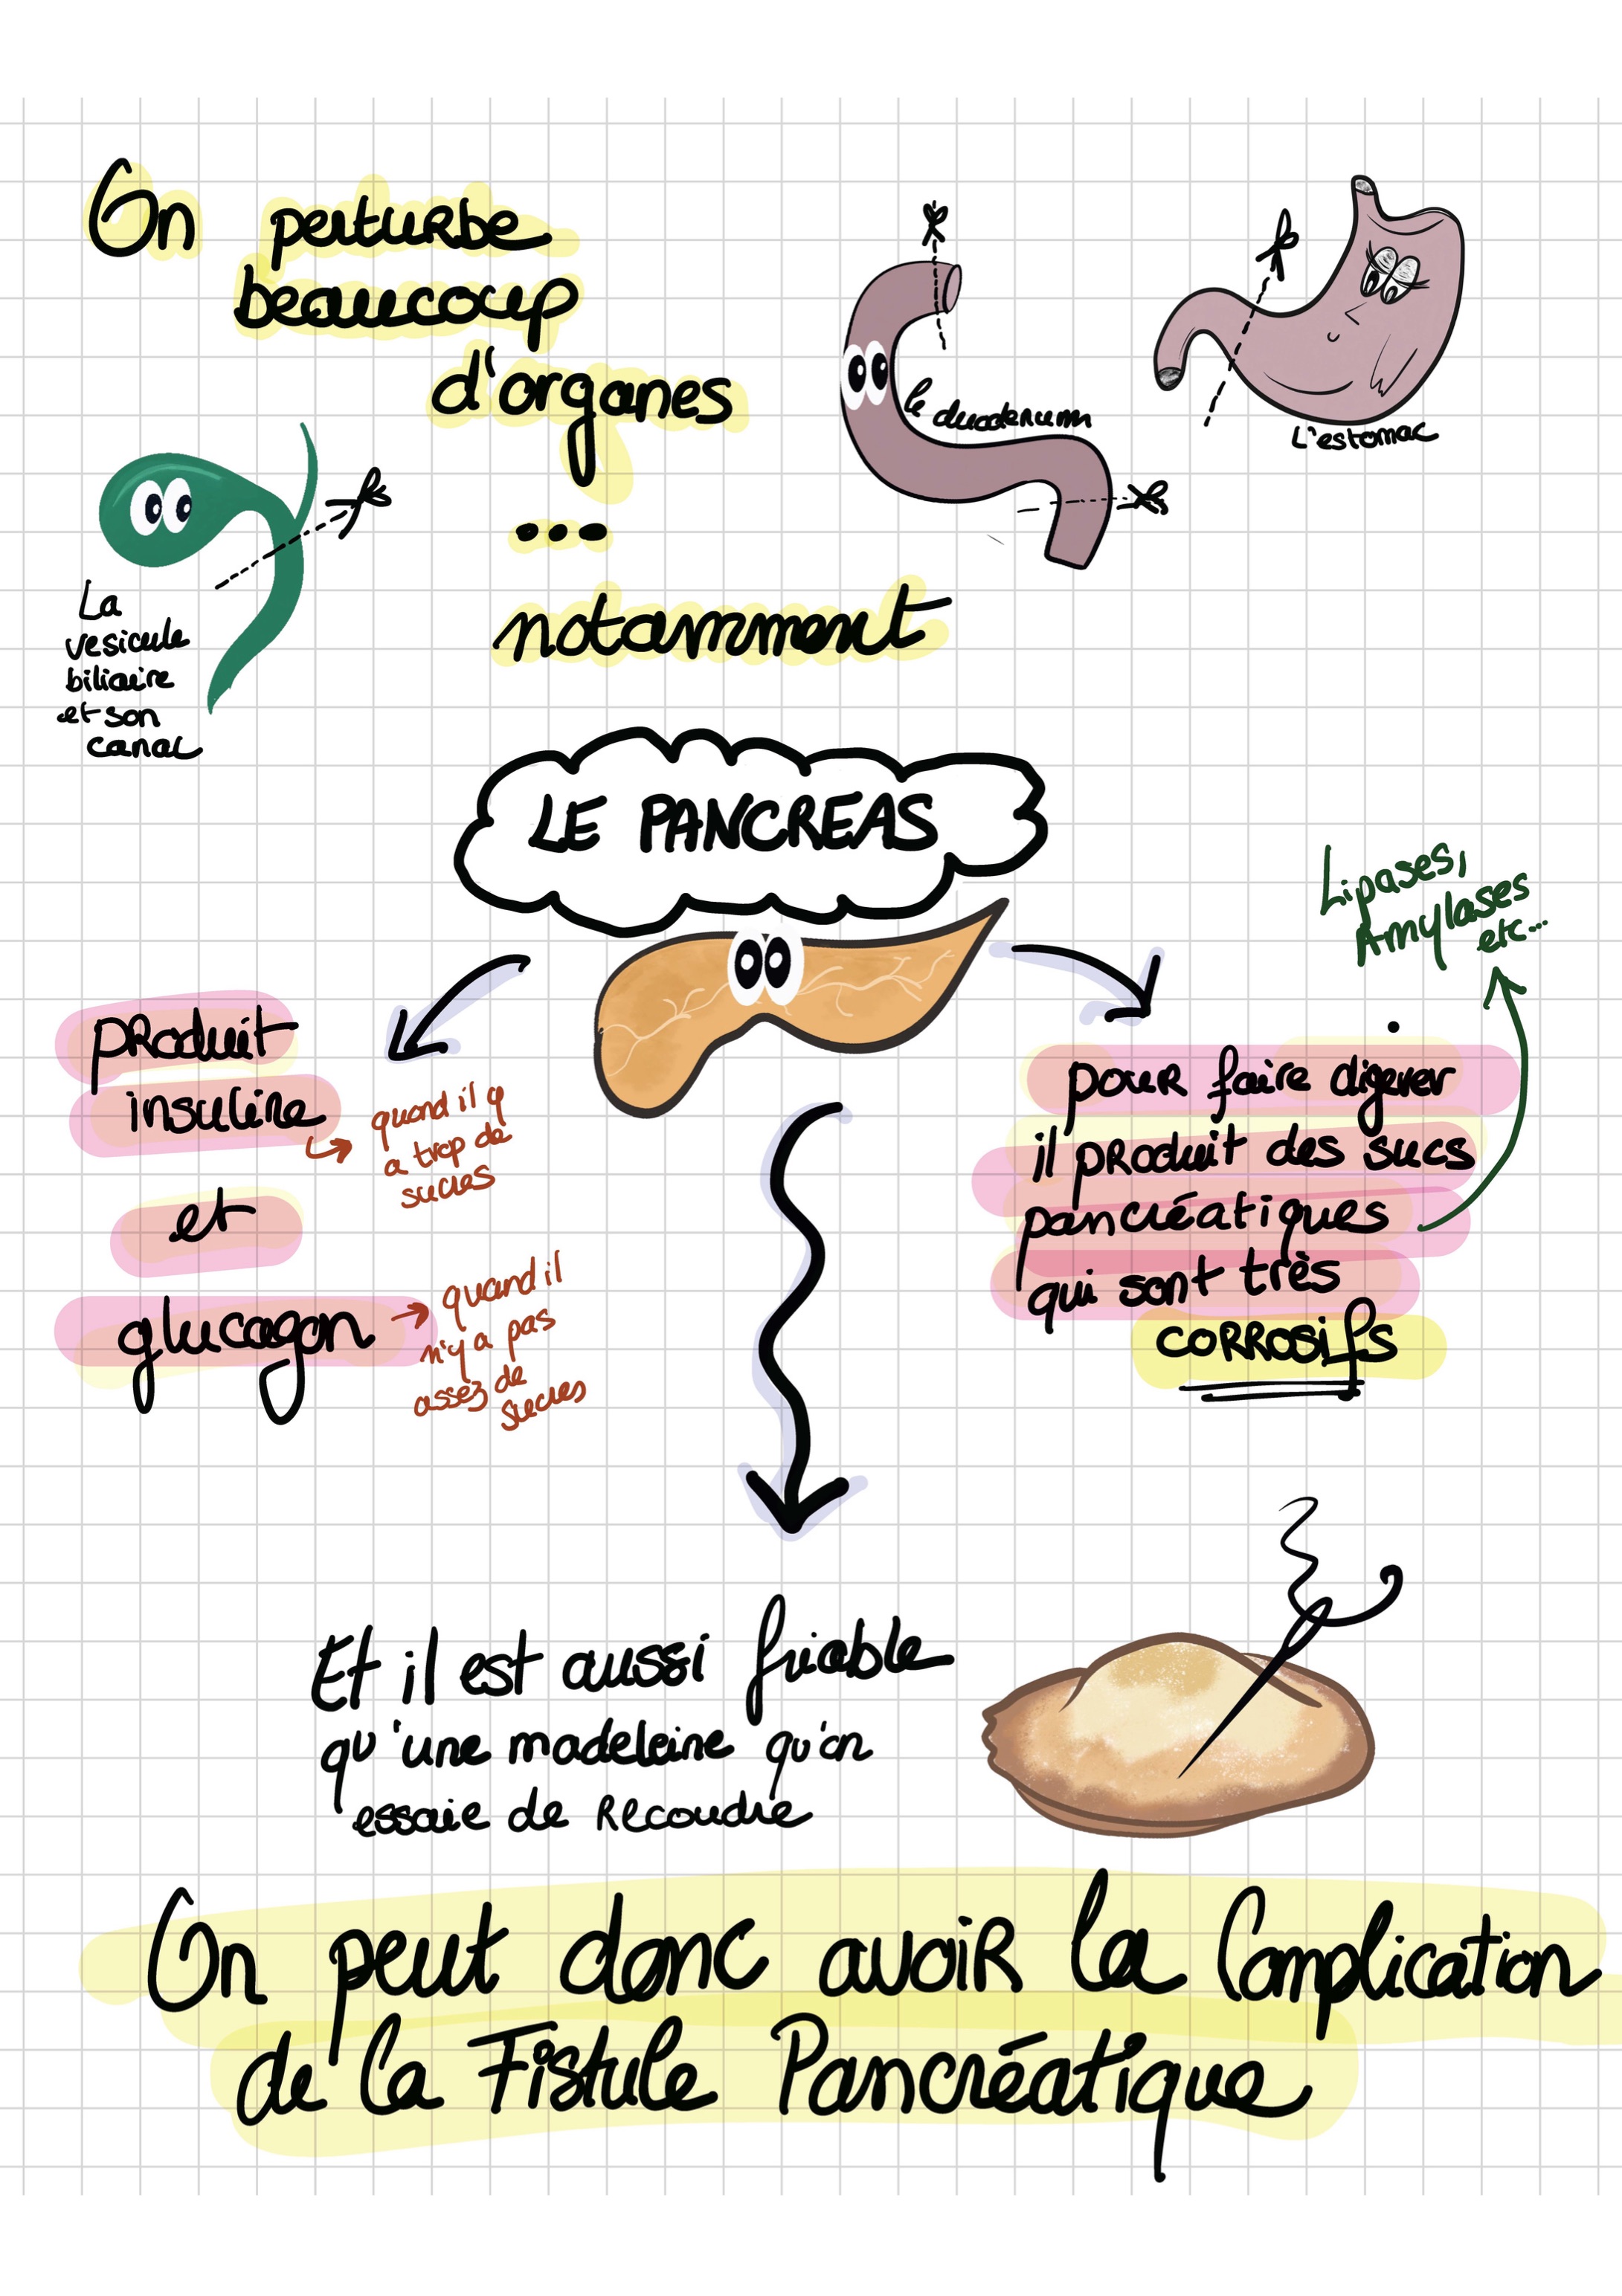 On perturbe
beaucoup
d'organes
...
notamment
le duodenum
L'estomac
La
vesicule
biliaire
et son
canal
LE PANCREAS
Lipases,
Amylases
etc...
produit
insuline
quand il y
a trop de
sucres
et
glucagon
quand il
n'y a pas
assez de
sucres
pour faire digerer
il produit des sucs
pancréatiques
qui sont très
corrosifs
Et il est aussi friable
qu'une madeleine qu'on
essaie de recoudre
On peut donc avoir la Complication
de la Fistule Pancréatique